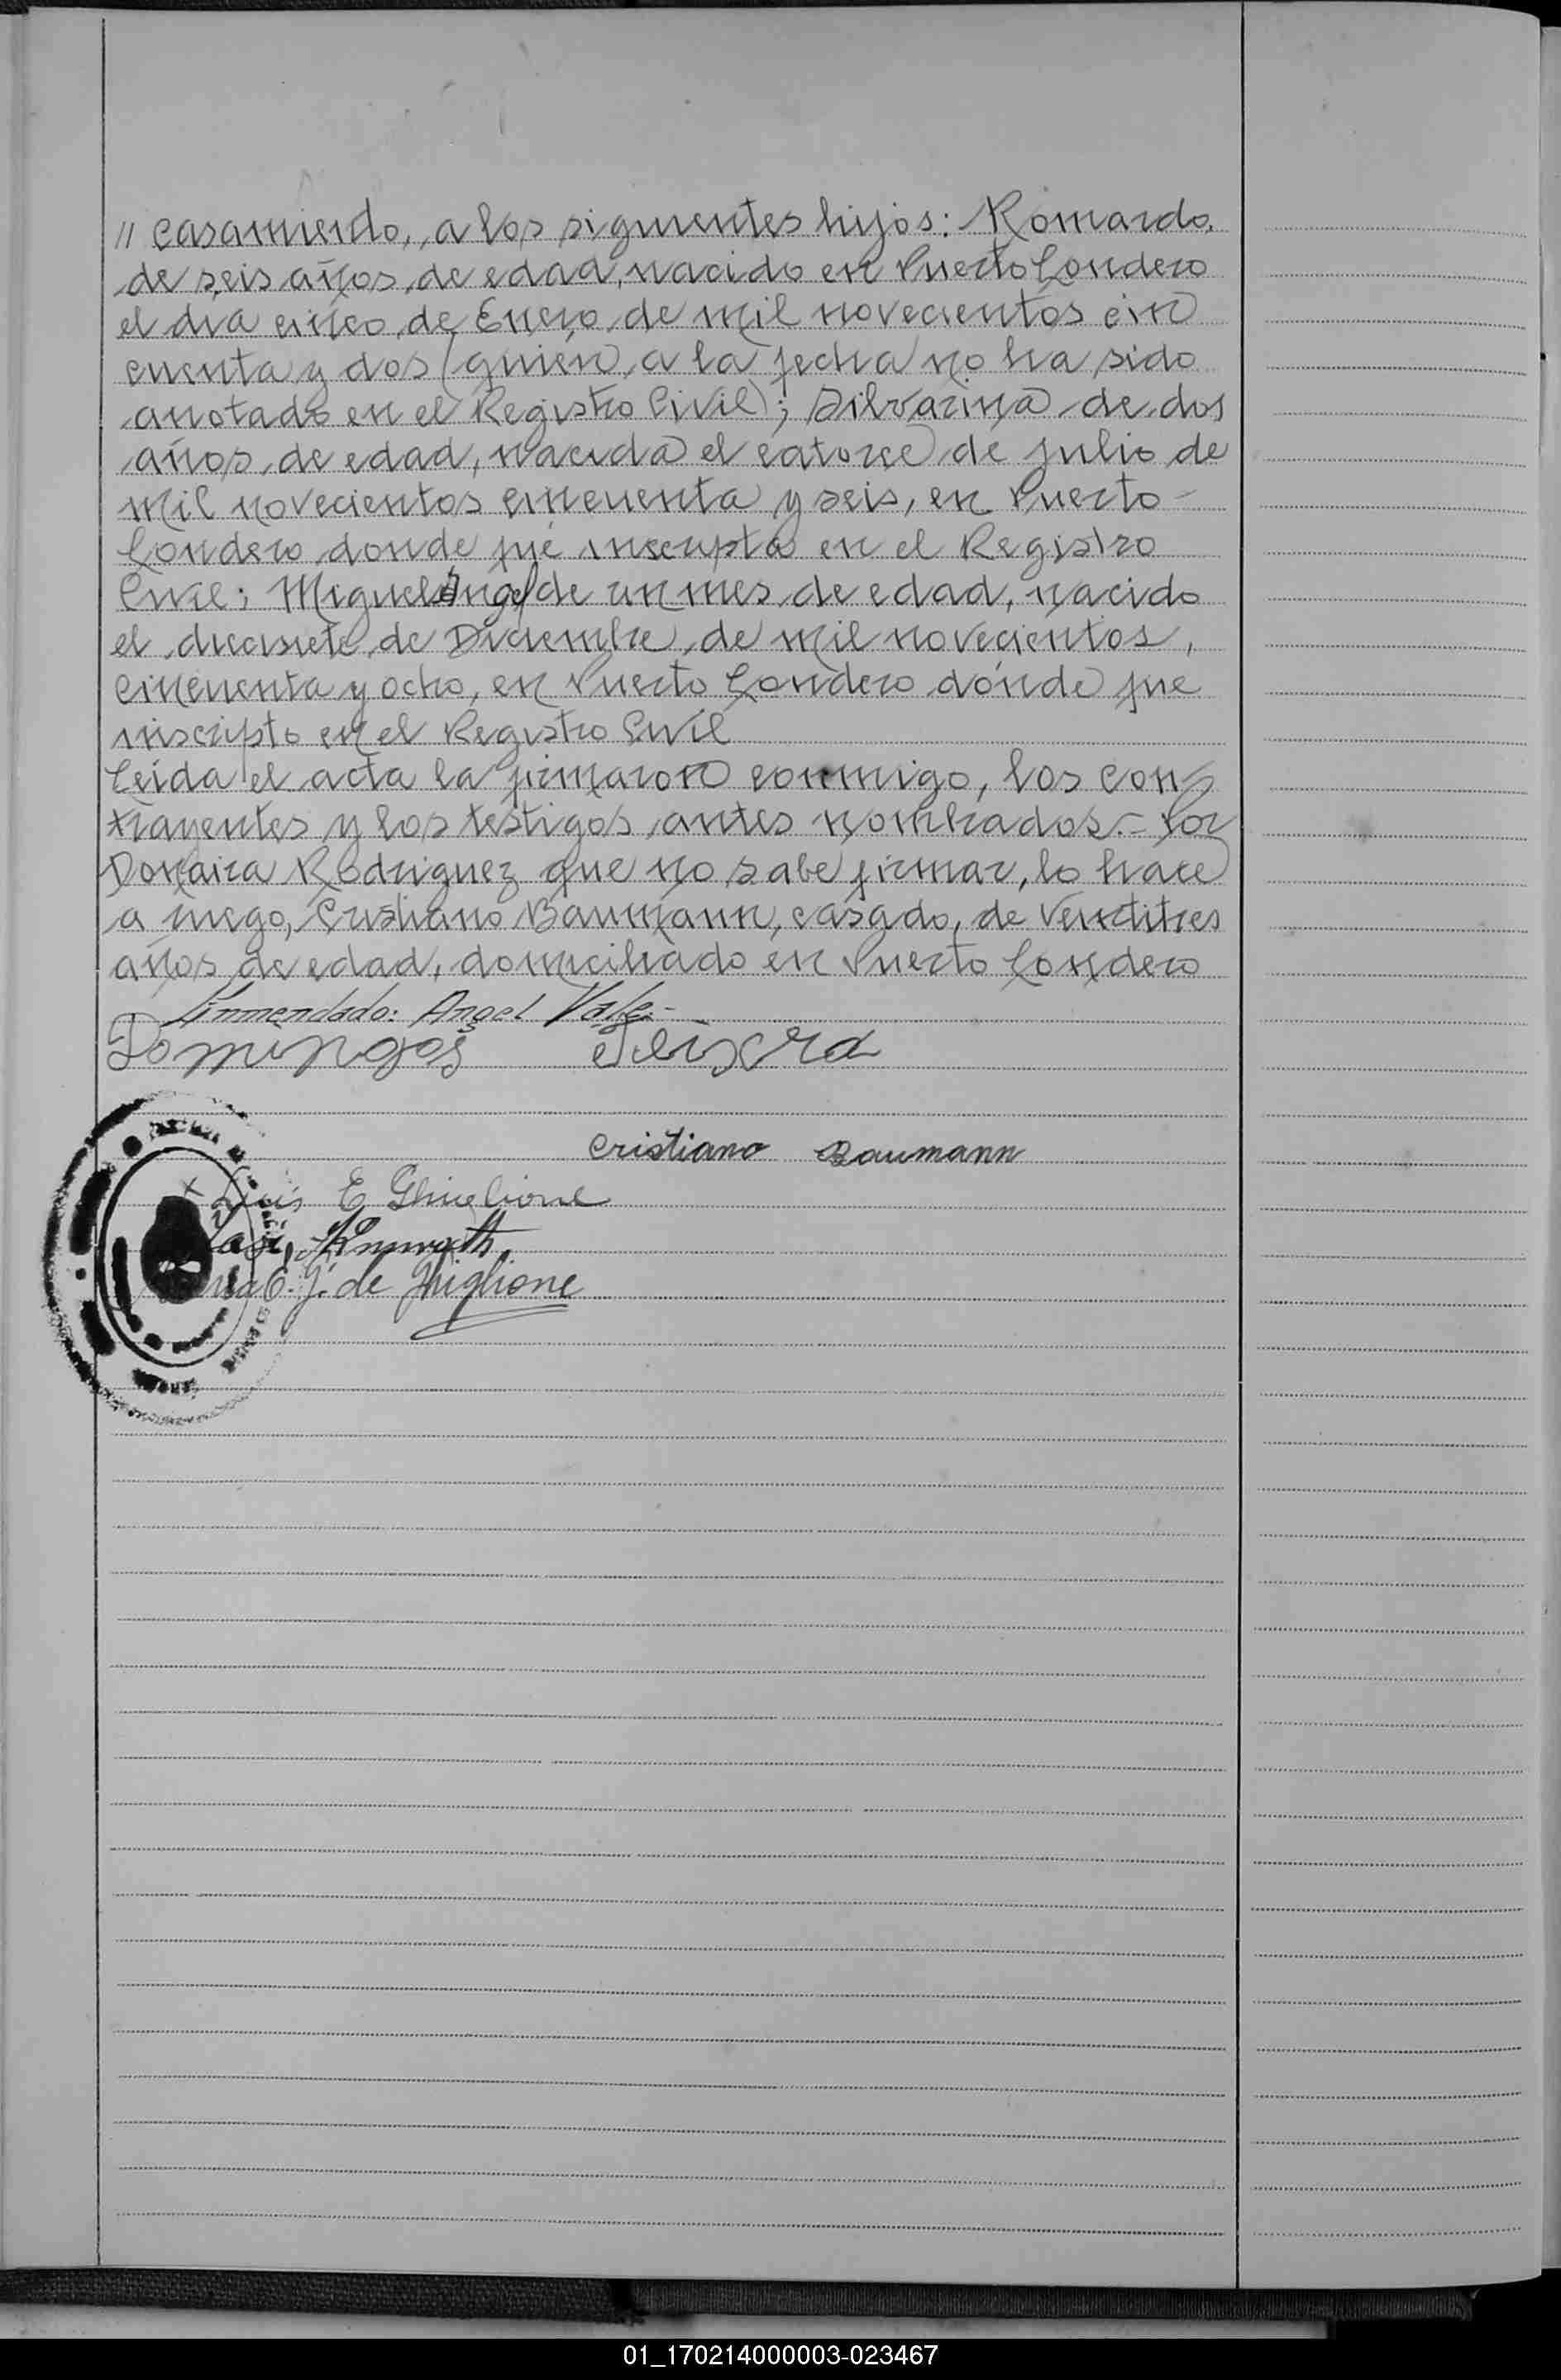 " casamiento, a los siguientes hijos: Romardo,
de seis años de edad, nacido en Puerto Londero
el dia cinco de Enero de mil novecientos cin
cuenta y dos (quien a la fecha no ha sido
anotado en el Registro Civil); Silvarina de dos
años de edad, nacida el catorce de julio de
mil novecientos cincuenta y seis, en Puerto -
Londero donde fué inscripta en el Registro
Civil; Miguel Angel de un mes de edad, nacido
el diecisiete de Diciembre de mil novecientos,
cincuenta y ocho, en Puerto Londero dónde fue
inscripto en el Registro Civil
Leída el acta la firmaron conmigo, los con-
trayentes y los testigos antes nombrados.- Por
Donaira Rodriguez que no sabe firmar, lo hace
a ruego, Cristiano Baumann, casado, de veintitres
años de edad, domiciliado en Puerto Londero
Enmendado: Angel Vale.-
Domingos Teixera
Cristiano Baumann
Luis E Ghiglione
E. J. de Ghiglione
01_170214000003-023467